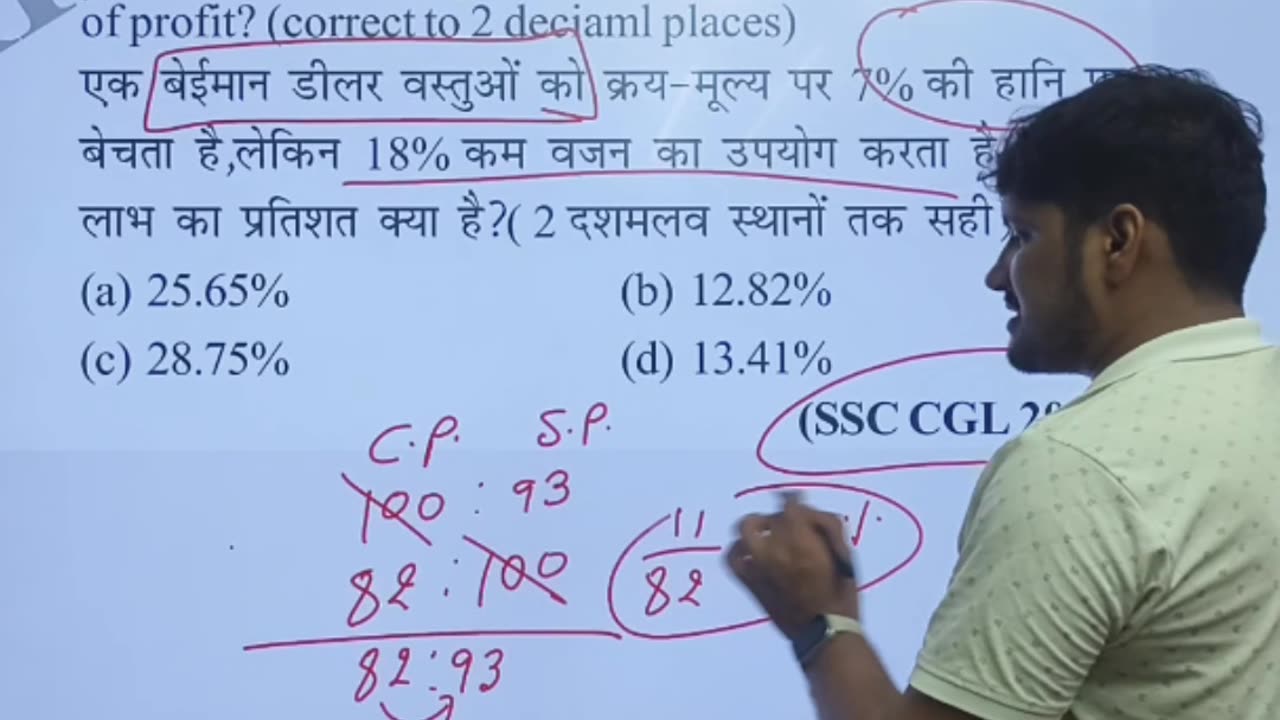 of profit? (correct to 2 deciaml places)
एक बेईमान डीलर वस्तुओं को क्रय-मूल्य पर 7% की हानि
बेचता है,लेकिन 18% कम वजन का उपयोग करता है
लाभ का प्रतिशत क्या है?( 2 दशमलव स्थानों तक सही
(a) 25.65% (b) 12.82%
(c) 28.75% (d) 13.41%
(SSC CGL
C.P. S.P.
100 : 93
82 : 100
82 : 93
11
82
%